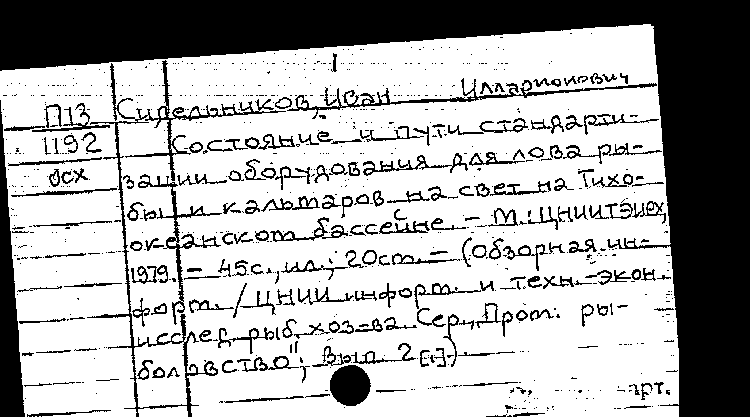 1
П13 Сидельников, Иван Илларионович
1192 Состояние и пути стандарти-
осх зации оборудования для лова ры-
бы и кальмаров на свет на Тихо-
океанском бассейне. – М.: ЦНИИТЭИРХ,
1979. – 45с., ил.; 20см. – (Обзорная ин-
форм. / ЦНИИ информ. и техн.-экон.
исслед. рыб. хоз-ва. Сер., „Пром. ры-
боловство"; Вып. 2 [1]).
арт.